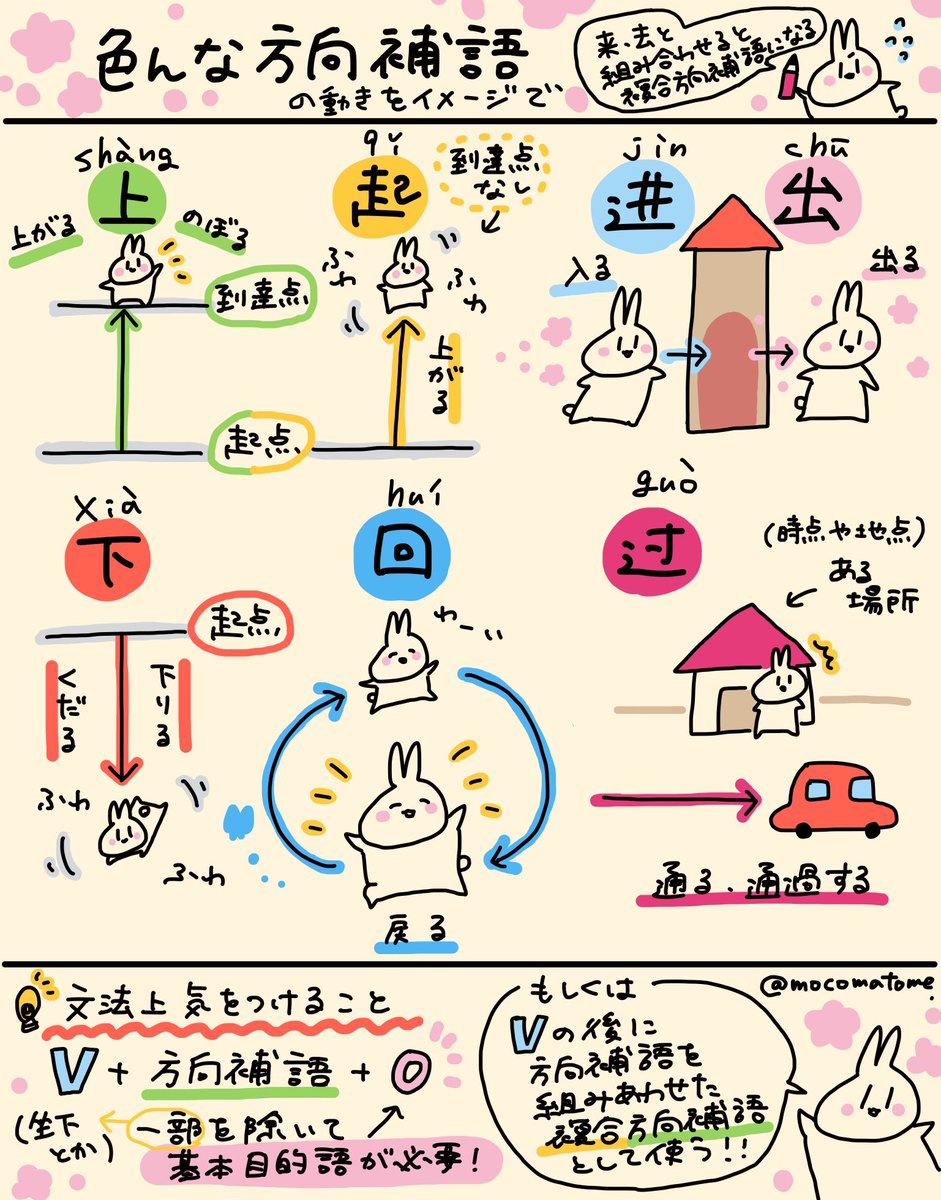 色んな方向補語
の動きをイメージで
来、去と
組み合わせると
複合方向補語になる
shàng
上
上がる
のぼる
到達点
起点
qǐ
起
到達点
なし
ふわ
ふわ
上がる
jìn
进
入る
chū
出
出る
xià
下
起点
くだる
下りる
ふわ
ふわ
huí
回
わーい
戻る
guò
过
(時点や地点)
ある
場所
通る、通過する
文法上気をつけること
V+方向補語+O
(坐下
とか)
一部を除いて
基本目的語が必要!
もしくは
Vの後に
方向補語を
組みあわせた
複合方向補語
として使う!!
@mocomatome